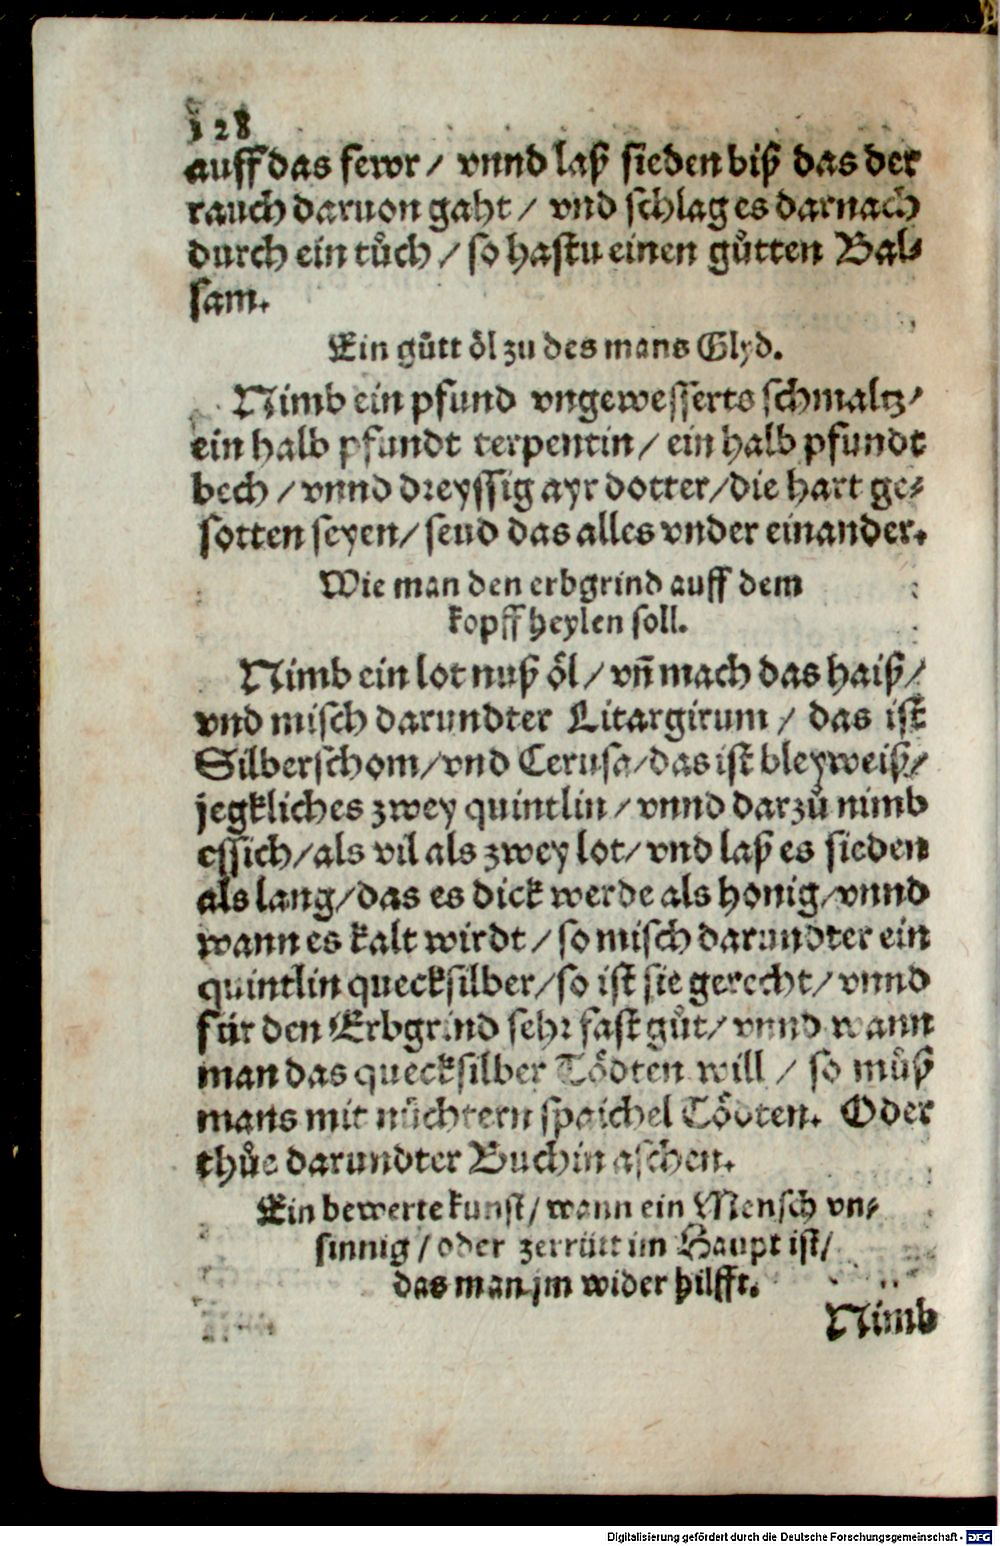 128
auff das fewr / vnnd laß sieden biß das der
rauch daruon gaht / vnd schlag es darnach
durch ein tůch / so hastu einen gůtten Bal⸗
sam.
Ein gůtt öl zu des mans Glyd.
Nimb ein pfund vngewesserts schmaltz/
ein halb pfundt terpentin / ein halb pfundt
bech / vnnd dreyssig ayr dotter/die hart ge⸗
sotten seyen/ seud das alles vnder einander.
Wie man den erbgrind auff dem
kopff heylen soll.
Nimb ein lot nuß öl / vñ mach das haiß/
vnd misch darundter Litargirum / das ist
Silberschom/vnd Cerusa/das ist bleyweiß/
jegkliches zwey quintlin / vnnd darzů nimb
essich/als vil als zwey lot/ vnd laß es sieden
als lang/das es dick werde als honig/vnnd
wann es kalt wirdt / so misch darundter ein
quintlin quecksilber/so ist sie gerecht/ vnnd
für den Erbgrind sehr fast gůt/ vnnd wann
man das quecksilber Tödten will / so můß
mans mit nůchtern spaichel Tödten. Oder
thůe darundter Buchin aschen.
Ein bewerte kunst/ wann ein Mensch vn⸗
sinnig / oder zerrütt im Haupt ist/
das man jm wider hilfft.
Nimb
Digitalisierung gefördert durch die Deutsche Forschungsgemeinschaft - DFG